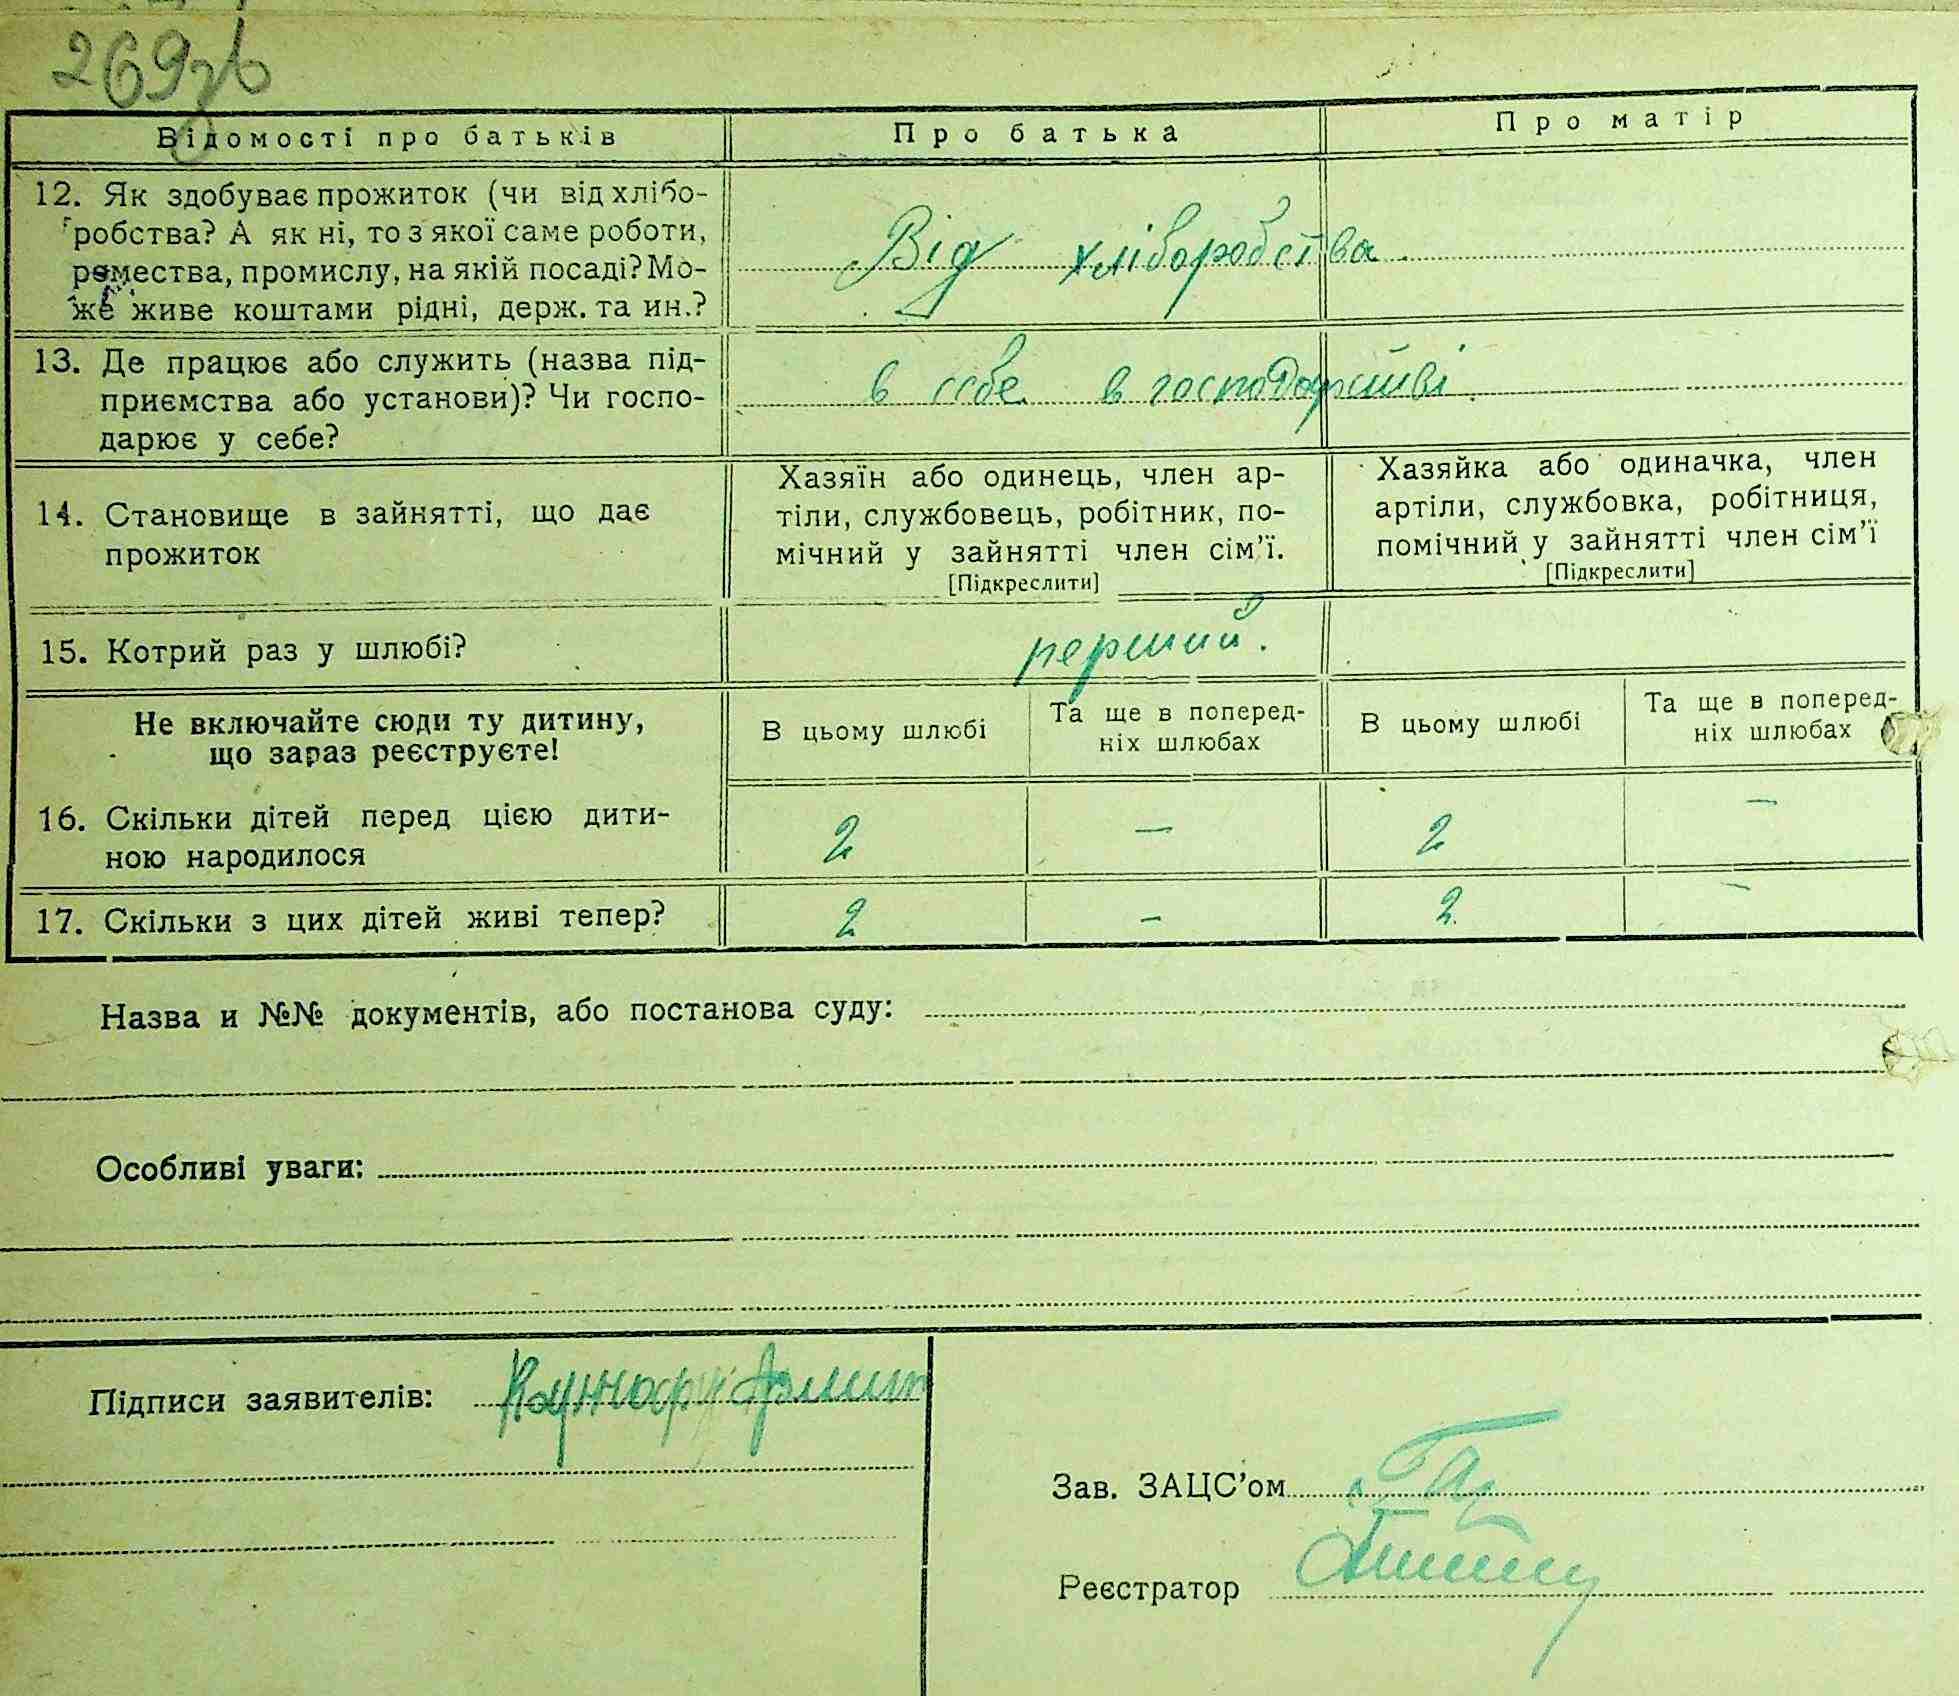 269зв
Відомості про батьків Про батька Про матір
12. Як здобуває прожиток (чи від хлібо-
робства? А як ні, то з якої саме роботи,
ремества, промислу, на якій посаді? Мо-
же живе коштами рідні, держ. та ин.?
Від хліборобства
13. Де працює або служить (назва під-
приємства або установи)? Чи госпо-
дарює у себе?
в себе в господарстві.
14. Становище в зайнятті, що дає
прожиток
Хазяїн або одинець, член ар-
тіли, службовець, робітник, по-
мічний у зайнятті член сім'ї.
[Підкреслити]
Хазяйка або одиначка, член
артіли, службовка, робітниця,
помічний у зайнятті член сім'ї
[Підкреслити]
15. Котрий раз у шлюбі?
перший.
Не включайте сюди ту дитину,
що зараз реєструєте!
В цьому шлюбі
Та ще в поперед-
ніх шлюбах
В цьому шлюбі
Та ще в поперед-
ніх шлюбах
16. Скільки дітей перед цією дити-
ною народилося
2 — 2 —
17. Скільки з цих дітей живі тепер?
2 — 2 —
Назва и №№ документів, або постанова суду:
Особливі уваги:
Підписи заявителів:
Зав. ЗАЦС'ом
Реєстратор